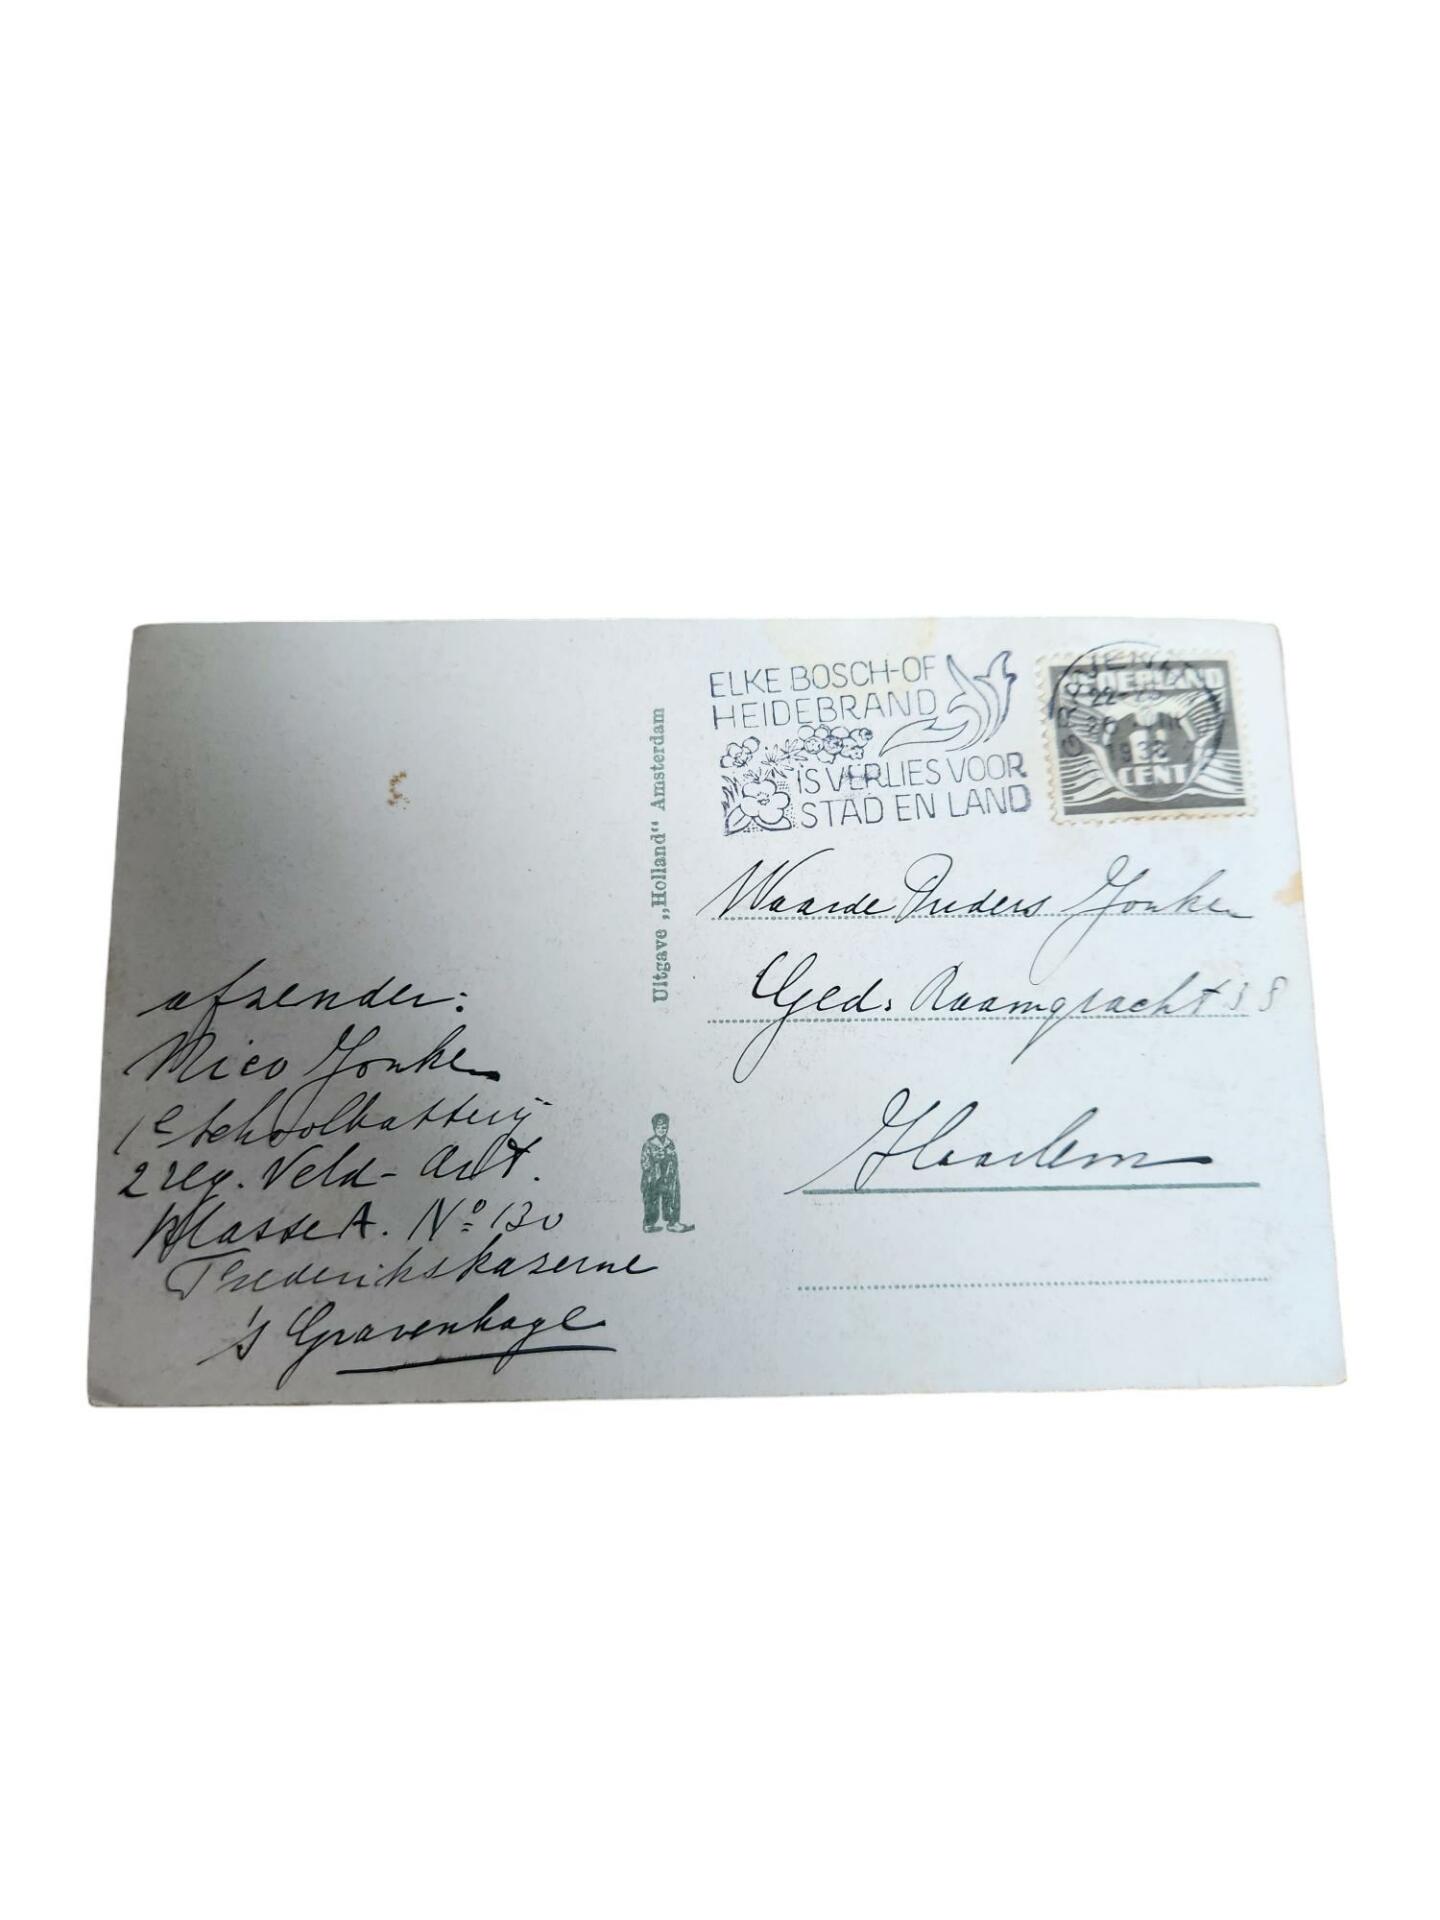 ELKE BOSCH-OF
HEIDEBRAND
IS VERLIES VOOR
STAD EN LAND
NEDERLAND
CENT
1938
Uitgave „Holland“ Amsterdam
Waarde Ouders Jonker
Ged. Raamgracht 38
Haarlem
afzender:
Nico Jonker
1e Schoolbatterij
2 reg. Veld-Art.
Klasse A. No 130
Frederikskazerne
's Gravenhage